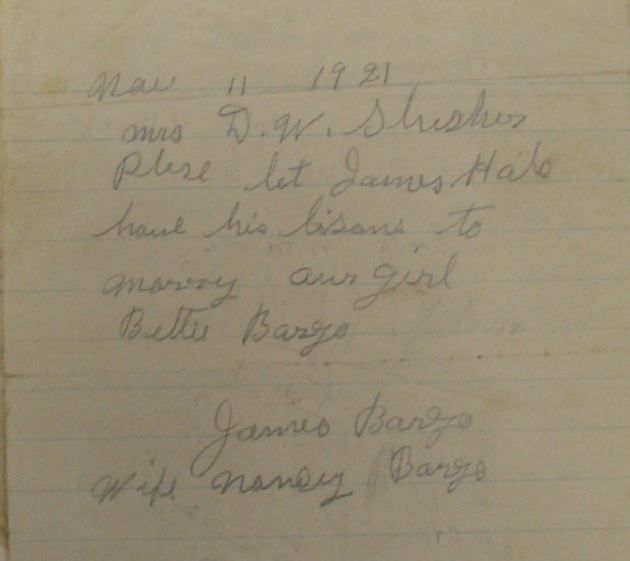 Nov 11 1921
Mrs D.W. Slusher
Plese let James Hale
have his lisans to
marry our girl
Bettie Bargo
James Bargo
Wife Nancy Bargo